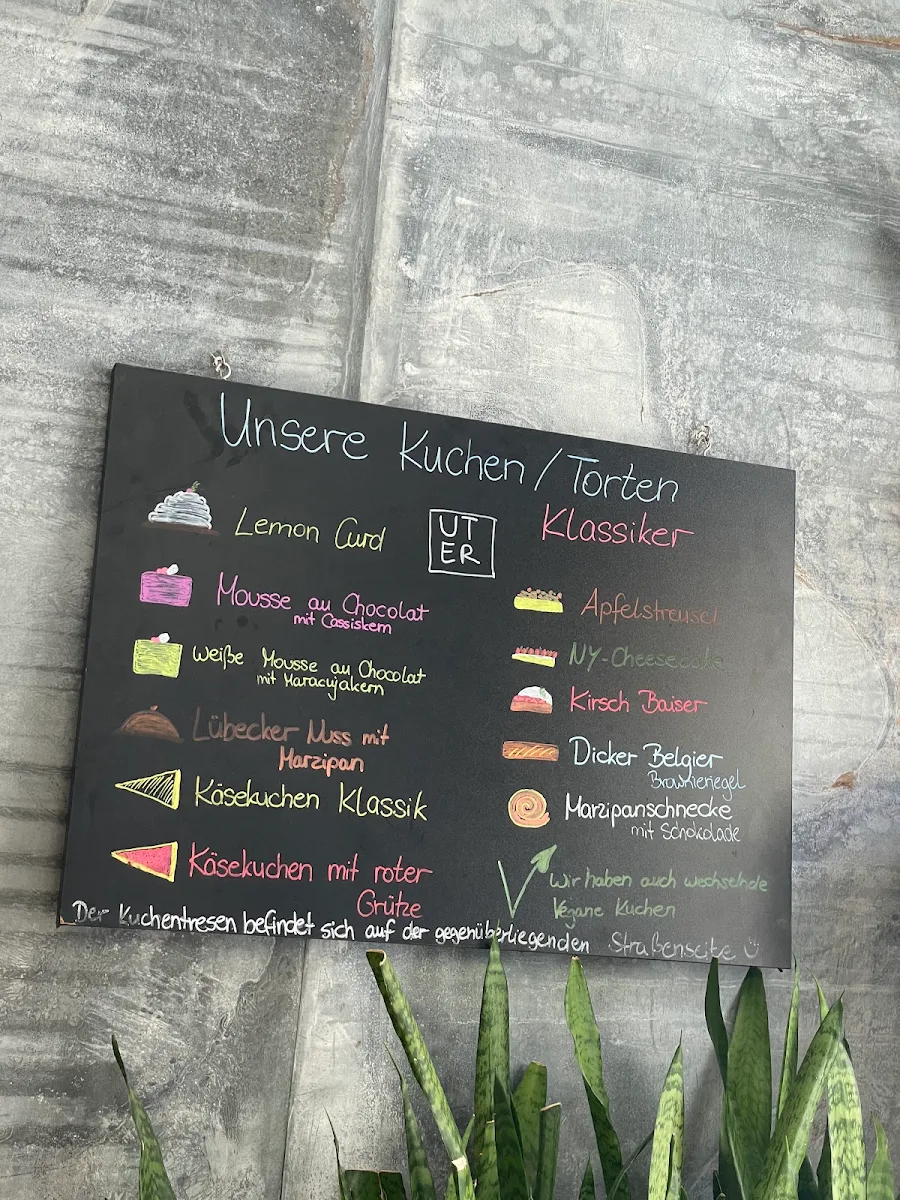 Unsere Kuchen / Torten
Lemon Curd
Mousse au Chocolat
mit Cassiskern
weiße Mousse au Chocolat
mit Maracujakern
Lübecker Nuss mit
Marzipan
Käsekuchen Klassik
Käsekuchen mit roter
Grütze
UT
ER
Klassiker
Apfelstreusel
NY-Cheesecake
Kirsch Baiser
Dicker Belgier
Brownieriegel
Marzipanschnecke
mit Schokolade
V
Wir haben auch wechselnde
Vegane Kuchen
Der Kuchentresen befindet sich auf der gegenüberliegenden Straßenseite